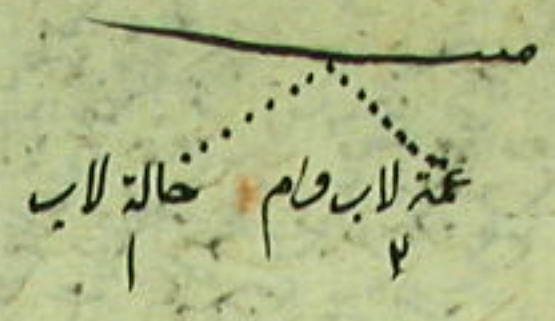 ميت
عمة لاب وام خالة لاب
٢ ١